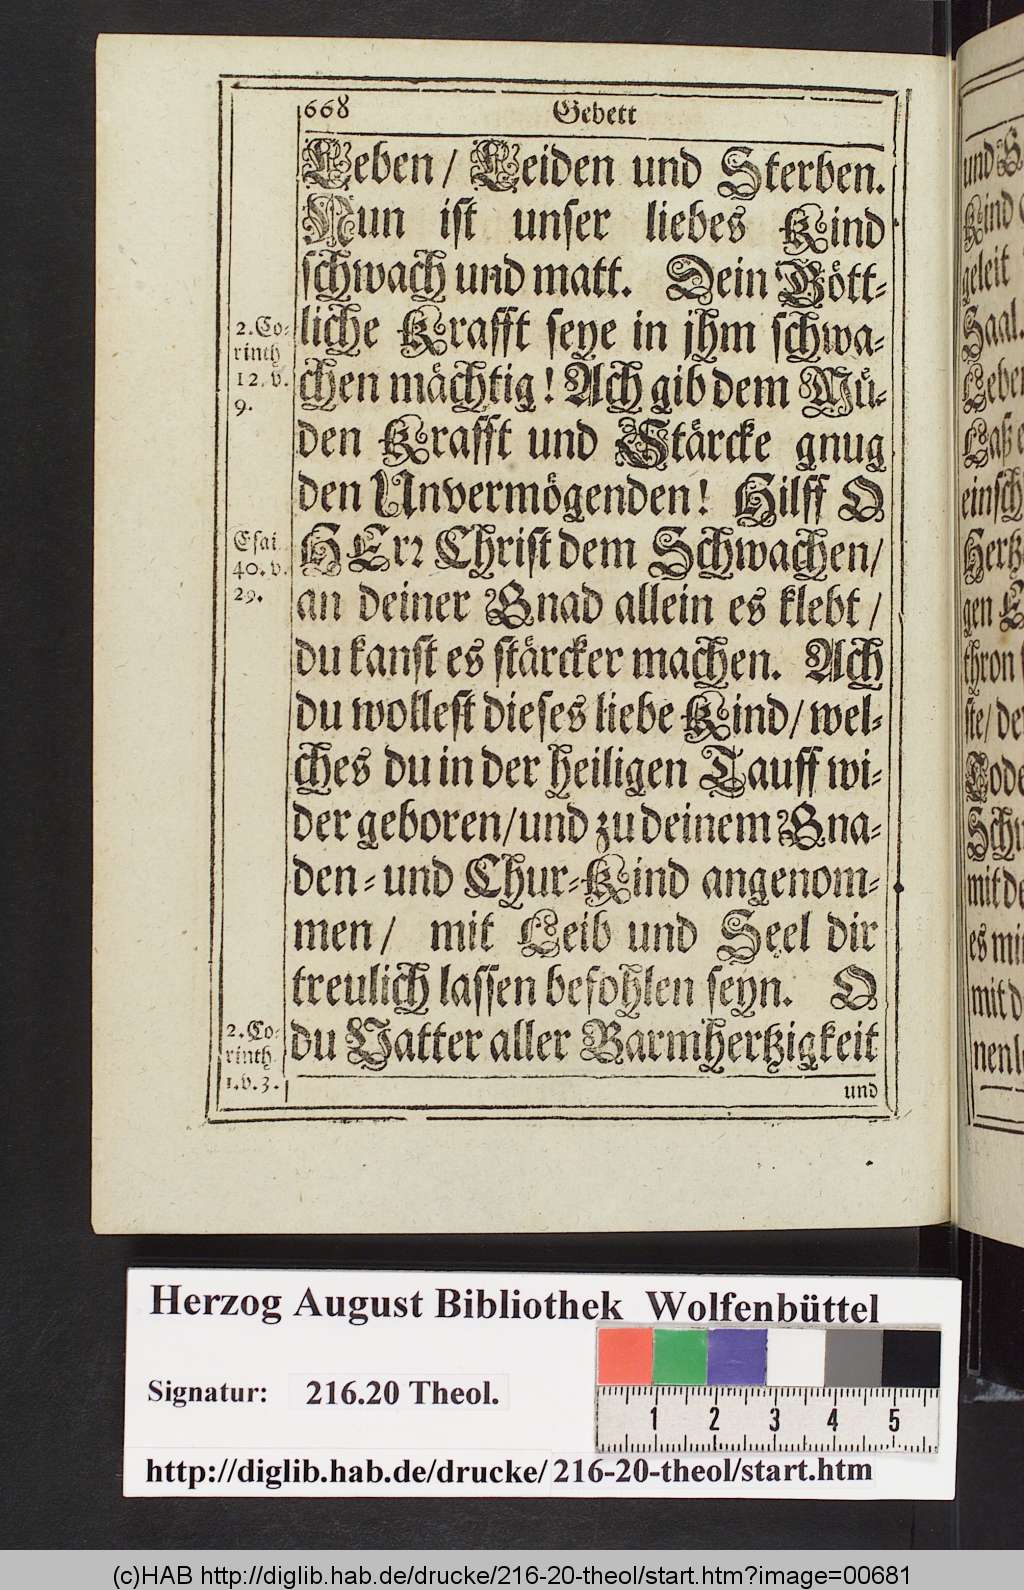 668 Gebett
Leben / Leiden und Sterben.
Nun ist unser liebes Kind
schwach und matt. Dein Gött-
liche Krafft seye in jhm schwa-
chen mächtig! Ach gib dem Mü-
den Krafft und Stärcke gnug
den Unvermögenden! Hilff O
HErr Christ dem Schwachen /
an deiner Gnad allein es klebt /
du kanst es stärcker machen. Ach
du wollest dieses liebe Kind / wel-
ches du in der heiligen Tauff wi-
der geboren / und zu deinem Gna-
den- und Chur-Kind angenom-
men / mit Leib und Seel dir
treulich lassen befohlen seyn. O
du Vatter aller Barmhertzigkeit
und
2. Co-
rinth
12. v.
9.
Esai.
40. v.
29.
2. Co-
rinth.
1. v. 3.
und
Kind
geleit
Saal.
Leben
Laß
einsch
Hertz
gen
thron
ste / de
Tode
Schu
mit de
es mit
mit d
nen l
Herzog August Bibliothek Wolfenbüttel
Signatur: 216.20 Theol.
1 2 3 4 5
http://diglib.hab.de/drucke/ 216-20-theol/start.htm
(c)HAB http://diglib.hab.de/drucke/216-20-theol/start.htm?image=00681